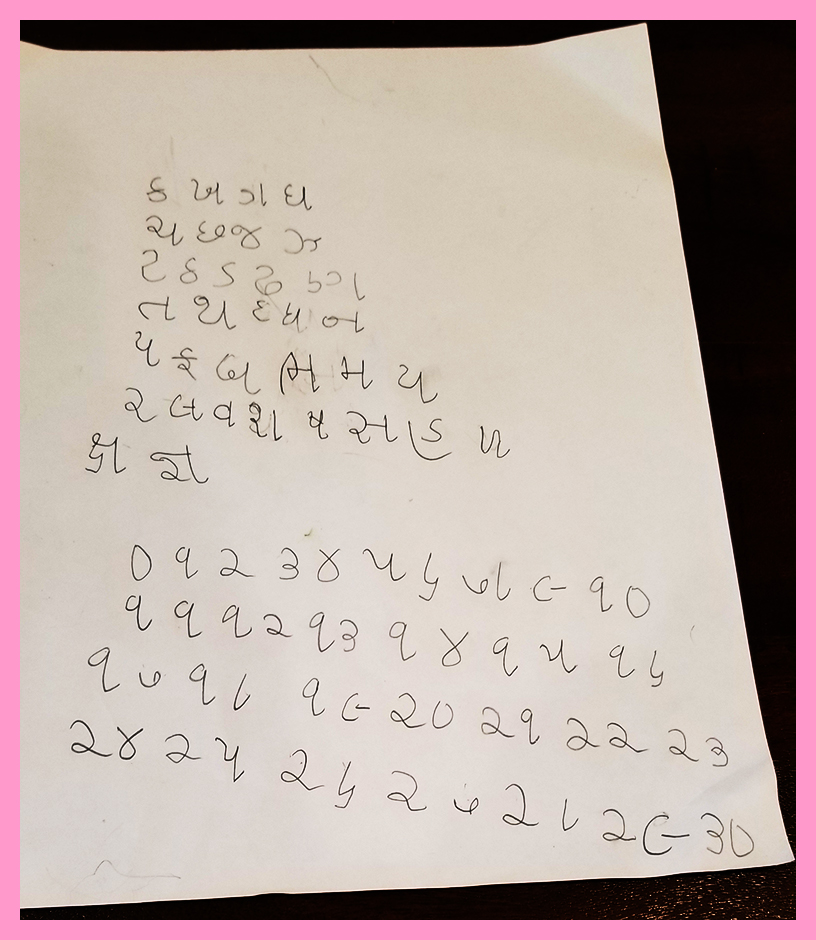 ક ખ ગ ઘ
ચ છ જ ઝ
ટ ઠ ડ ઢ ણ
ત થ દ ધ ન
પ ફ બ ભ મ ય
ર લ વ શ ષ સ હ ળ
ક્ષ જ્ઞ
૦ ૧ ૨ ૩ ૪ ૫ ૬ ૭ ૮ ૯ ૧૦
૧૧ ૧૨ ૧૩ ૧૪ ૧૫ ૧૬
૧૭ ૧૮ ૧૯ ૨૦ ૨૧ ૨૨ ૨૩
૨૪ ૨૫ ૨૬ ૨૭ ૨૮ ૨૯ ૩૦